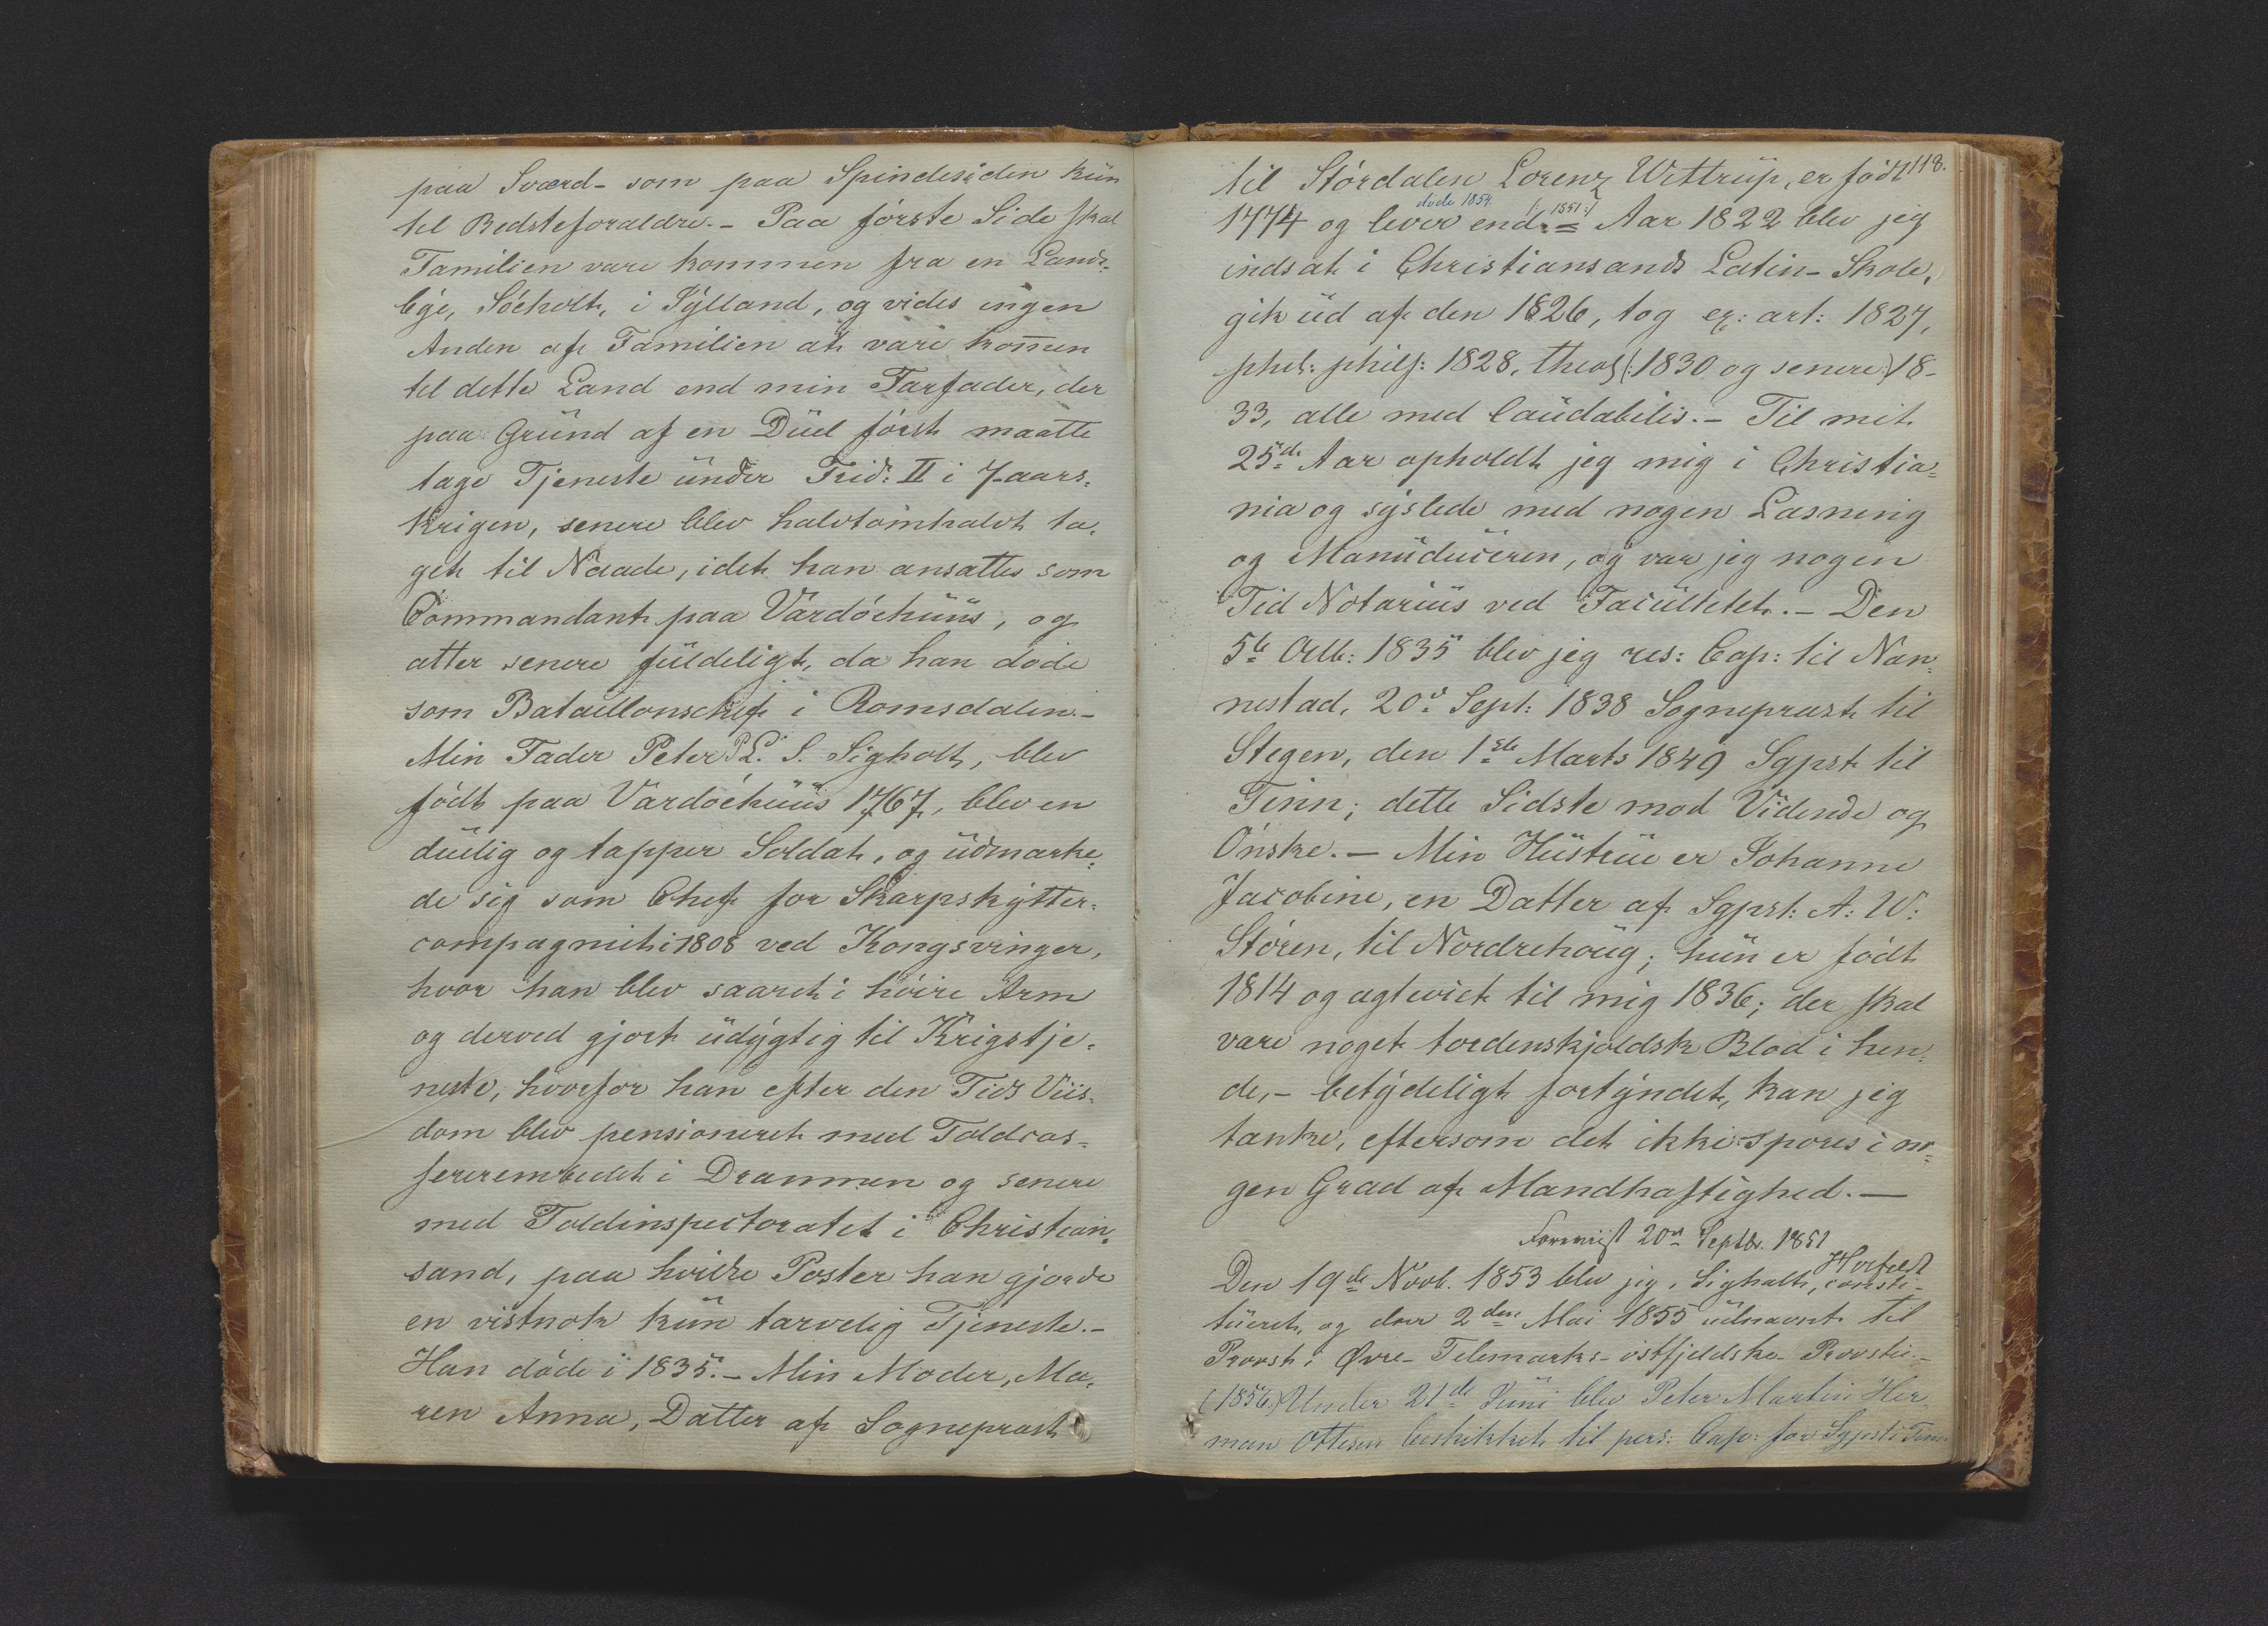 paa Sværd- som paa Spindesiden kun
til Bedsteforældre. - Paa første Side skal
Familien være kommen fra en Lands-
bye, Söeholt, i Jylland, og vides ingen
Anden af Familien at være kom̄en
til dette Land end min Farfader, der
paa Grund af en Duel først maatte
tage Tjeneste under Frid: II i 7-aars-
krigen, senere blev halvtomhalvt ta-
get til Naade, idet han ansattes som
Commandant paa Vardöehuus, og
atter senere fuldeligt, da han døde
som Bataillonschef i Romsdalen. -
Min Fader Peter P. L. S. Sigholt, blev
født paa Vardöehuus 1767, blev en
duelig og tapper Soldat, og udmærke-
de sig som Chef for Skarpskytter-
compagniet i 1808 ved Kongsvinger,
hvor han blev saaret i höire Arm
og derved gjort udygtig til Krigstje-
neste, hvorfor han efter den Tids Viis-
dom blev pensioneret med Toldcas-
sererembedet i Drammen og senere
med Toldinspectoratet i Christian-
sand, paa hvilke Poster han gjorde
en vistnok kun tarvelig Tjeneste. -
Han døde i 1835. - Min Moder, Ma-
ren Anna, Datter af Sognepræst
118.
til Stördalen Lorenz Wittrup, er født
døde 1854. (: 1851 :)
1774 og lever end. = Aar 1822 blev jeg
indsat i Christiansands Latin-Skole,
gik ud af den 1826, tog ex: art: 1827,
phil: philos: 1828, theol (: 1830 og senere :) 18-
33, alle med laudabilis. - Til mit
25de Aar opholdt jeg mig i Christia-
nia og syslede med nogen Læsning
og Manuduceren, og var jeg nogen
Tid Notarius ved Facultetet. - Den
5te Octb: 1835 blev jeg res: Cap: til Nan-
nestad, 20d Sept: 1838 Sognepræst til
Stegen, den 1ste Marts 1849 Sgpst til
Tinn; dette Sidste mod Vidende og
Önske. - Min Hustrue er Johanne
Jacobine, en Datter af Sgpst: A: W:
Stören, til Nordrehoug; hun er født
1814 og ægteviet til mig 1836; der skal
være noget tordenskjoldsk Blod i hen-
de, - betydeligt fortyndet, kan jeg
tænke, eftersom det ikke spores i no-
gen Grad af Mandhaftighed. -
Foreviist 20de Septbr. 1851
Den 19de Novb. 1853 blev jeg, Sigholt, consti-
tueret, og den 2den Mai 1855 udnævnt til
Provst i Øvre-Telemarks-östfjeldske Provstie. -
(1856.) Under 21de Juni blev Peter Martin Her-
man Ottesen beskikket til pers: Cap: for Sgpst i Tinn